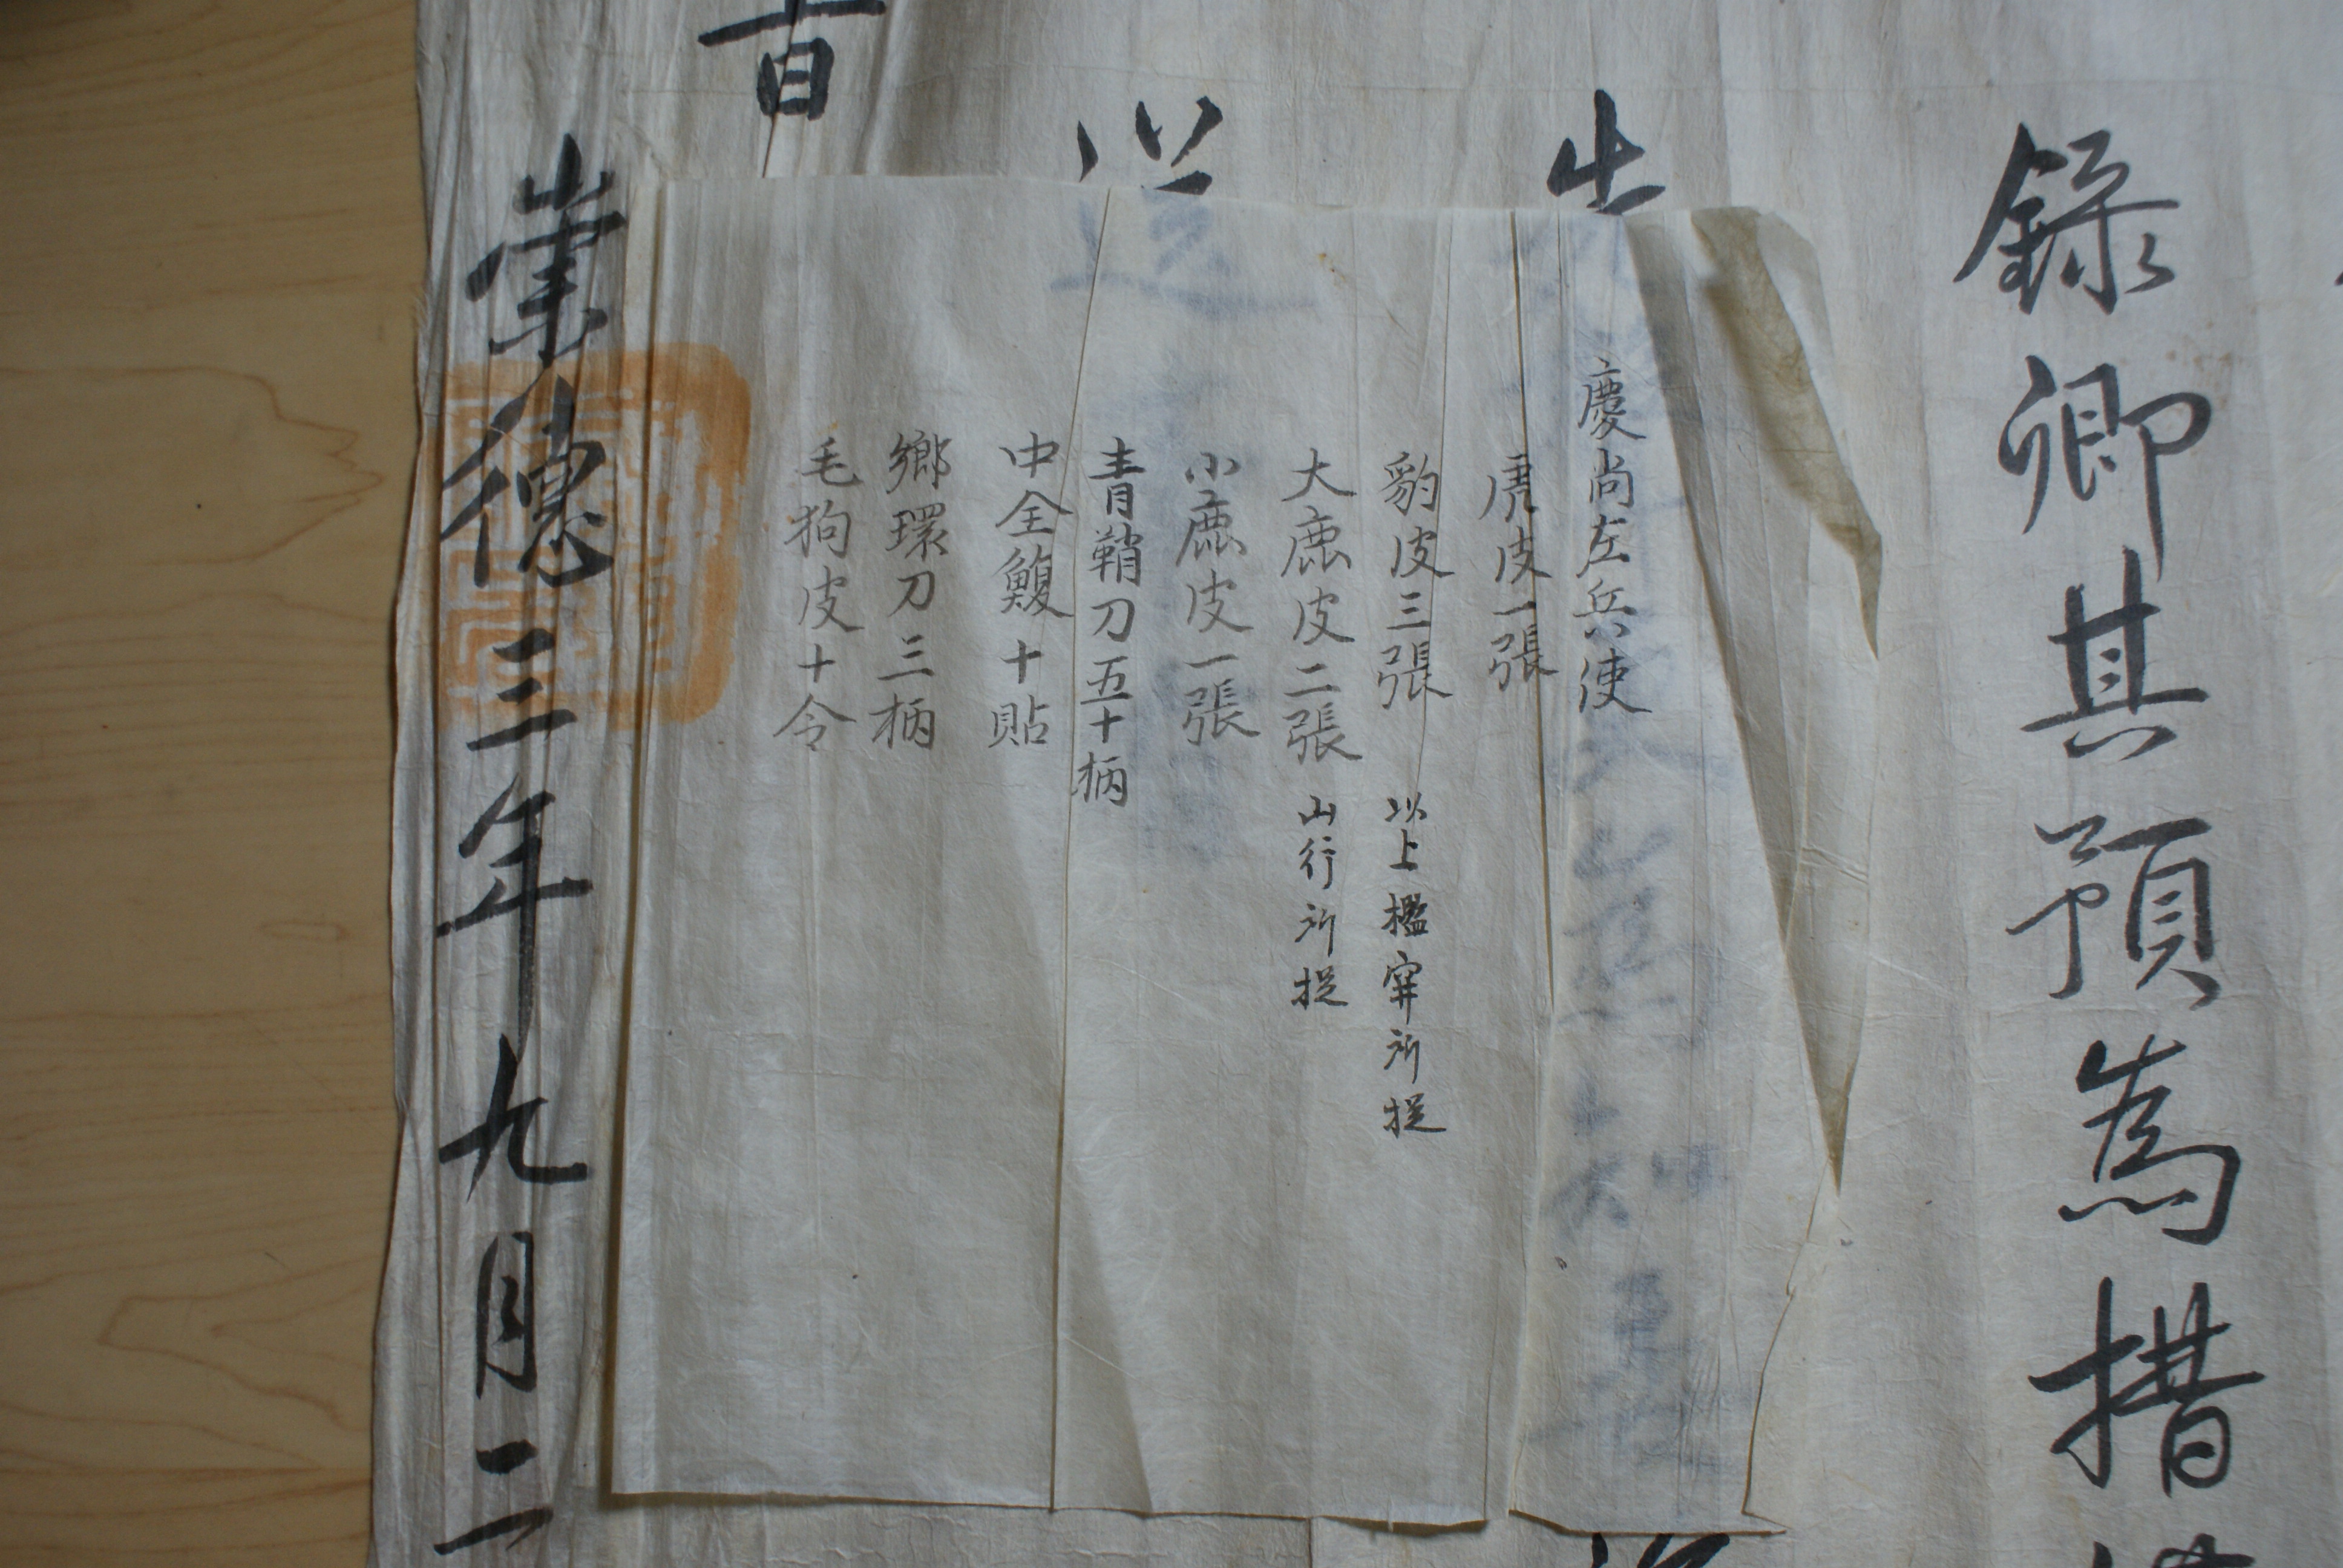 錄卿其預為措
慶尙左兵使
虎皮一張
豹皮三張 以上檻穽所捉
大鹿皮二張 山行所捉
小鹿皮一張
靑鞘刀五十柄
中全鰒十貼
鄉環刀三柄
毛狗皮十令
崇德三年九月二